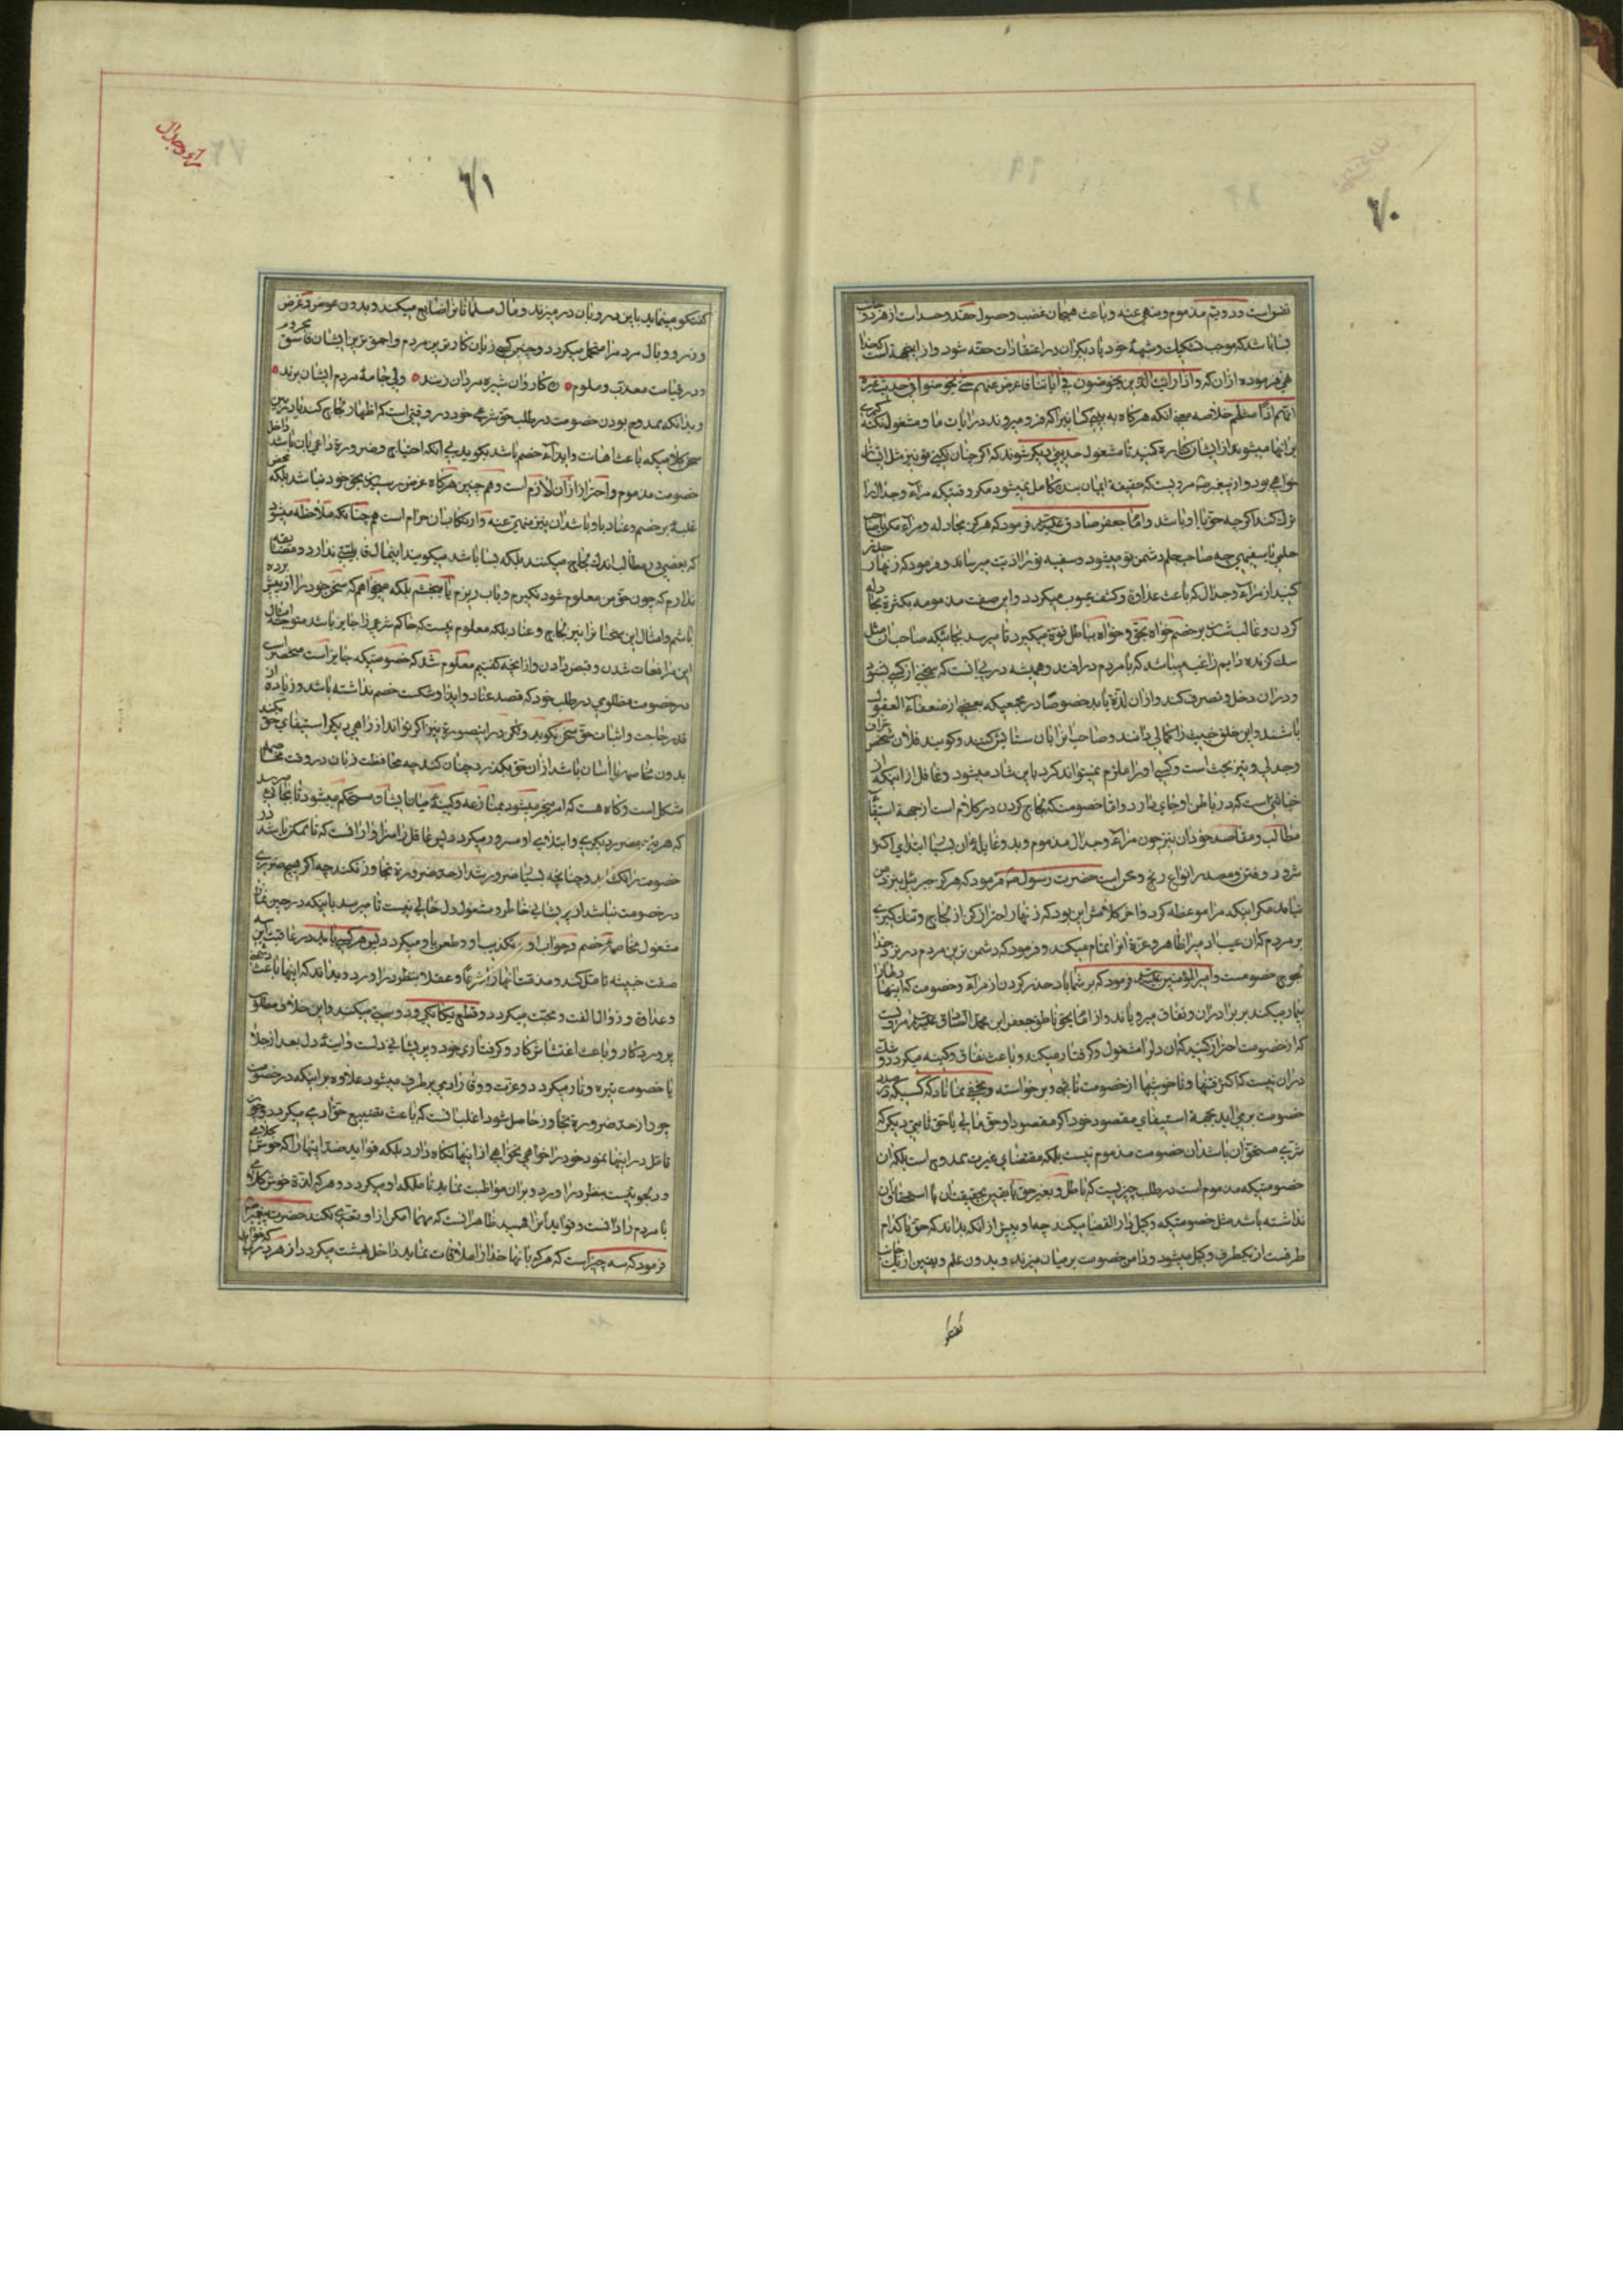 ۷۰
نفس است و دویّم مذموم و منهی عنه و باعث هیجان غضب و حصول حقد و حسد است از هر دو جانب
بسا باشد که موجب تشکیک و شبههٔ خود یا دیگران در اعتقادات حقه شود و از اینجهة است که خدا
نهی فرموده از آن که و اذا رایت الّذین یخوضون فی ایاتنا فاعرض عنهم حتی یخوضوا فی حدیث غیره
خلاصه معنی انکه هرگاه به بینی کسانیرا که فرو میروند در ایات ما و مشغول نکته گیری
بر انها میشوند از ایشان کناره کنید تا مشغول حدیثی دیگر شوند که اگر چنان نکنی تو نیز مثل ایشان
خواهی بود و از پیغمبر مرویست که حقیقة ایمان بنده کامل نمیشود مگر وقتیکه مرآء و جدال را
ترک کند اگرچه حق با او باشد و امام جعفر صادق علیه فرمود که هرگز مجادله و مرآء مکن با صاحب
حلمی یا سفیهی چه صاحب حلم دشمن تو میشود و سفیه تو را اذیت میرساند و فرمود که زنهار حذر
کنید از مرآء و جدال که باعث عداوة و کشف عیوب میگردد و این صفت مذمومه بکثرة مجادله
کردن و غالب شدن بر خصم خواه بحق و خواه بباطل قوة میگیرد تا میرسد بجائیکه صاحبان مثل
سک گزنده دایم راغب میباشد که با مردم در افتد و همیشه در پی انست که سخنی از کسی بشنود
و در ان دخل و تصرف کند و از ان لذّة یابد خصوصًا در مجمعیکه بعضی از ضعفاء العقول
باشند و این خلق خبیث را کمالی دانند و صاحب انرا بان ستایش کنند و گویند فلان شخص نزاع
و جدلی و تیز بحث است و کسی او را ملزم نمیتواند کرد باین شاد میشود و غافل از اینکه این
خباثتی است که در باطن او جای دارد و اما خصومت که لجاج کردن در کلام است از جهة استیفای
مطالب و مقاصد خود ان نیز چون مرآء و جدال مذموم و بد و غایله ان بسیار ابتدای اکثر
شرور و فتن و مصدر انواع رنج و محن است حضرت رسول ص فرمود که هرگز جبرئیل بنزد من
نیامد مگر اینکه مرا موعظه کرد و اخر کلامش این بود که زنهار احتراز کن از لجاج و تنک گیری
بر مردم که ان عیب ادمیرا ظاهر و عزة انرا تمام میکند و فرمود که دشمن ترین مردم در نزد خدا
لجوج خصومست و امیر المؤمنین علیه فرمود که بر شما باد حذر کردن از مرآء و خصومت که اینها دلها را
بیمار میکند بر برادران و نفاق میرویاند و از امام بحق ناطق جعفر ابن محمّد الصّادق علیه مرویست
که از خصومت احتراز کنید که ان دلرا مشغول و گرفتار میکند و باعث نفاق و کینه میگردد و شک
در ان نیست که اکثر فتنها و ناخوشیها از خصومت ناشی و برخواسته و مخفی نماناد که کسیکه در صدد
خصومت بر می اید بجهة استیفای مقصود خود اگر مقصود او حق مالی یا حق ثابتی دیگر که
شرع مستحق ان باشد ان خصومت مذموم نیست بلکه مقتضای غیرت ممدوح است بلکه ان
خصومتیکه مذموم است در طلب چیزیست که باطل و بغیر حق یا یقین بحقیقتان یا استحقاق ان
نداشته باشد مثل خصومتیکه وکیل دار القضا میکند چه او پیش از انکه بداند که حق با کدام
طرفست از یکطرف وکیل میشود و دامن خصومت بر میان میزند و بدون علم و یقین از یک جانب
گفتگو
۷۱
مرآء و جدال
گفتگو مینماید باین در و بان در میزند و مال مسلمانانرا ضایع میکند و بدون عوض و غرض
وزر و وبال مردم را متحمل میگردد و چنین کسی زیان کار ترین مردم و احمق ترین ایشان فاسق محروم
و در قیامت معذب و ملوم کاروان شیره مردان زنند ولی جامهٔ مردم ایشان برند
و بدانکه ممدوح بودن خصومت در طلب حق شرعی خود در وقتی است که اظهار لجاج نکند
سخن کلامیکه باعث اهانت و ایذآء خصم باشد نگوید بی انکه احتیاج و ضرورة داعی بان باشد داخل
خصومت مذموم و احتراز از ان لازم است و هم چنین هرگاه غرض رسیدن بحق خود نباشد بلکه محض
غلبهٔ بر خصم و عناد با او باشد ان نیز منهی عنه و ارتکاب ان حرام است هم چنانکه ملاحظه میشود
که بعضی در مطالب اندک لجاج میکنند بلکه بسا باشد میگویند اینمال قابلیتی ندارد و مضایقه
ندارم که چون حق من معلوم شود بگیرم و باب ریزم یا ببخشم بلکه میخواهم که سخن خود را از پیش برده
باشم و امثال این سخنان و این نیز لجاج و عناد بلکه معلوم نیست که حاکم شرعی را جایز باشد متوجه امثال
این مرافعات شدن و فیصل دادن و از انچه گفتیم معلوم شد که خصومتیکه جایز است منحصر است
در خصومت مظلومی در طلب خود که قصد عناد و ایذا و شکست خصم نداشته باشد و زیاده از
قدر حاجت و اثبات حق سخن نگوید و لکن در اینصورة نیز اگر تواند از راهی دیگر استیفای حق بکند
بدون مخاصمه یا اسان باشد از ان حق بگذرد چنان کند چه محافظت زبان در وقت مخاصمه
مشکل است و گاه هست که امر منجر میشود بمنازعه و کینهٔ میان ایشان مستحکم میشود تا بجائی میرسد
که هر یک بضرر دیگری و ابتلای او مسرور میگردد پس عاقل را سزاوار انست که تا ممکن باشد در
خصومت را نگشاید و چنانچه بسیار ضرور شد از حد ضرورة تجاوز نکند چه اگر هیچ ضرری
در خصومت نباشد از پریشانی خاطر و مشغول دل خالی نیست تا میرسد بانیکه در حین نماز
مشغول مخاصمهٔ خصم و جواب او و تکذیب او و طعن باو میگردد پس هر که چه باید در عاقبت این
صفت خبیثه تامل کند و مذمّت انها را شرعًا و عقلا بنظر در اورد و بداند که اینها باعث دشمنی
و عداوة و زوال الفت و محبّت میگردد و قطع یگانگی و دوستی میکند و این خلاف مطلوب
پروردگار و باعث اغتشاش کار و گرفتاری خود و پریشانی دلست و اینهٔ دل بعد از جلا
با خصومت تیره و تار میگردد و عزّت و وقار ادمی برطرف میشود علاوه بر اینکه در خصومت
چو از حد ضرورة تجاوز حاصل شود اغلب انست که باعث تضییع حق ادمی میگردد
تامل در اینها نمود خود را خواهی نخواهی از اینها نگاه دارد بلکه فواید ضد اینها را که خوش کلامی
و دلجوئیست بنظر در اورد و بر ان مواظبت نماید تا ملکه او میگردد و هر که لذّة خوش کلامی
با مردم را دانست و فواید انرا فهمید ظاهر انست که مهما امکن از او تعدّی نکند حضرت پیغمبر
فرمود که سه چیز است که هر که با انها خدا را ملاقات نماید داخل بهشت میگردد از هر در که خواهد